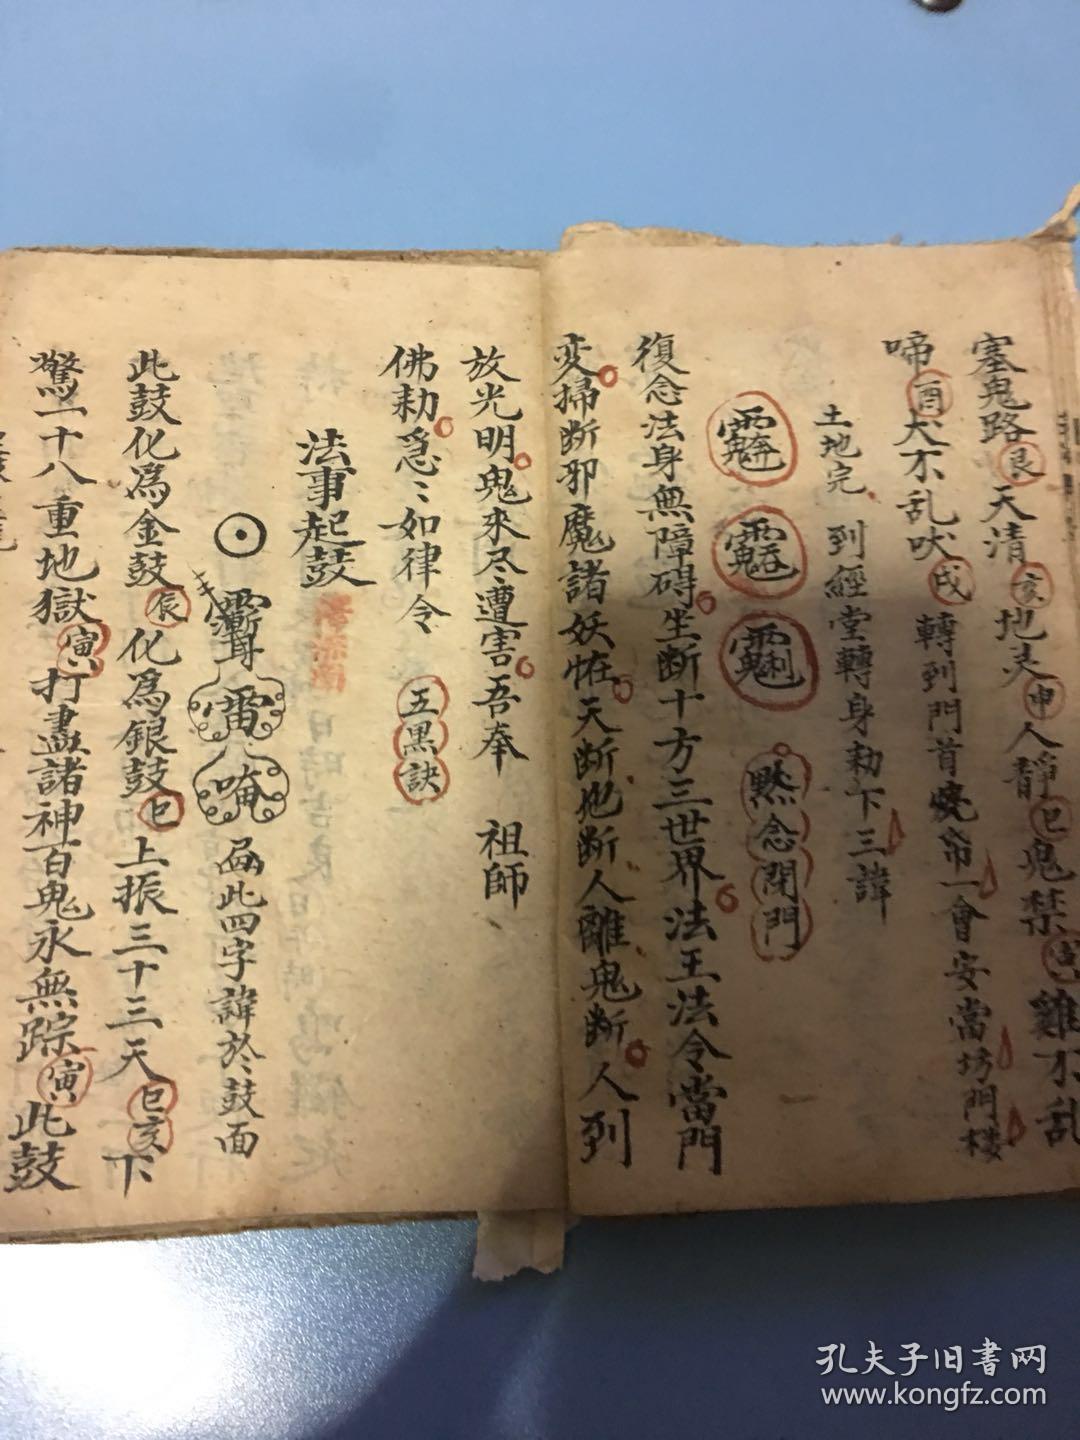 塞鬼路艮天清亥地灵申人静巳鬼禁寅雞不乱
啼酉犬不乱吠戌轉到門首燒帛一會安當坊門樓
土地完 到經堂轉身勅下三諱
默念閉門
復念法身無障碍坐断十方三世界法王法令當門
变掃断邪魔諸妖怪天断地断人離鬼断人列
放光明鬼來尽遭害吾奉 祖師
佛勅急〻如律令 五黑訣
法事起鼓
雷 唵 此四字諱於鼓面
此鼓化為金鼓辰化為銀鼓巳上振三十三天巳亥下
驚一十八重地獄寅打盡諸神百鬼永無踪寅此鼓
孔夫子旧書网
www.kongfz.com